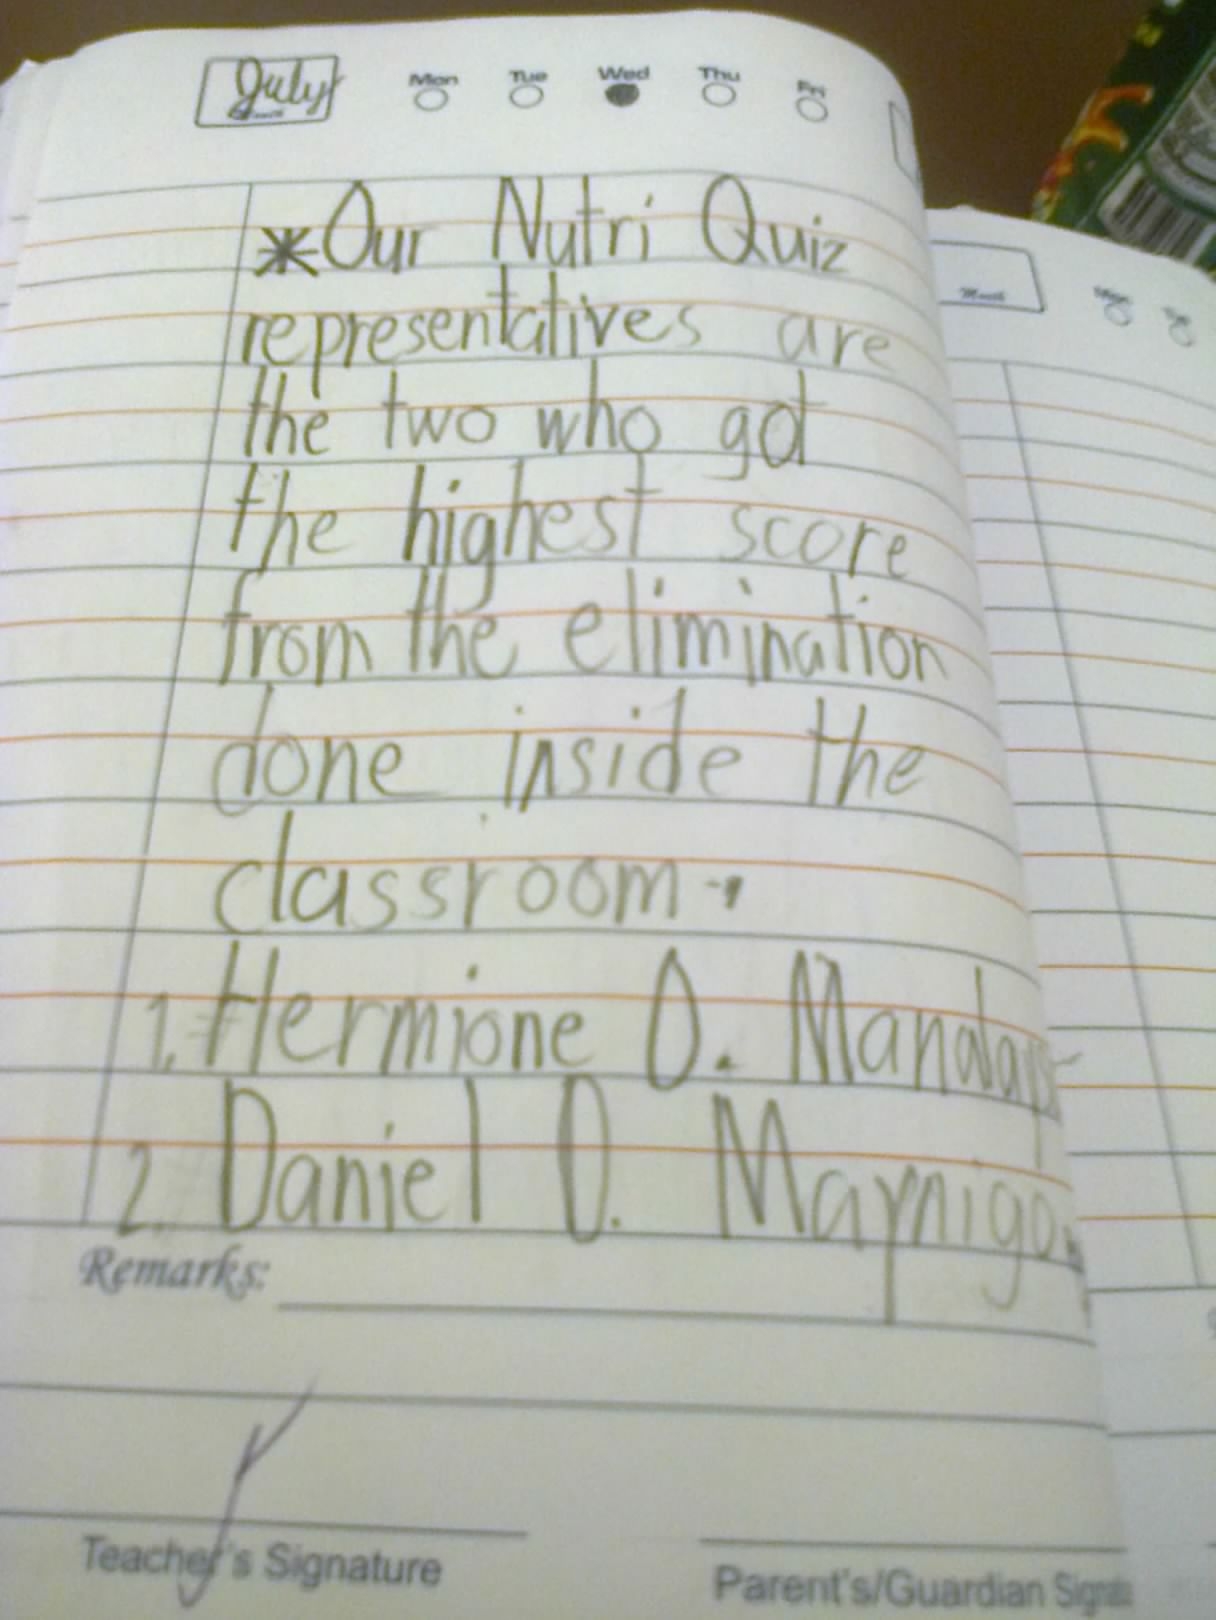 July Mon Tue Wed Thu Fri
Month
*Our Nutri Quiz
representatives are
the two who got
the highest score
from the elimination
done inside the
classroom.
1. Hermione O. Manalay
2. Daniel O. Maynigo
Remarks:
Teacher's Signature
Parent's/Guardian
Month